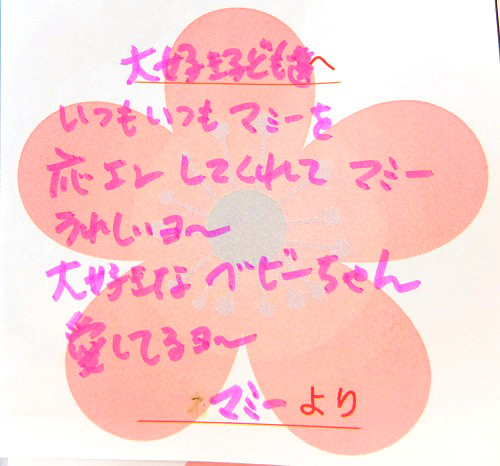 大好き子ども達へ
いつもいつもマミーを
応エンしてくれてマミー
うれしいヨ〜
大好きなベビーちゃん
愛してるヨ〜
マミーより